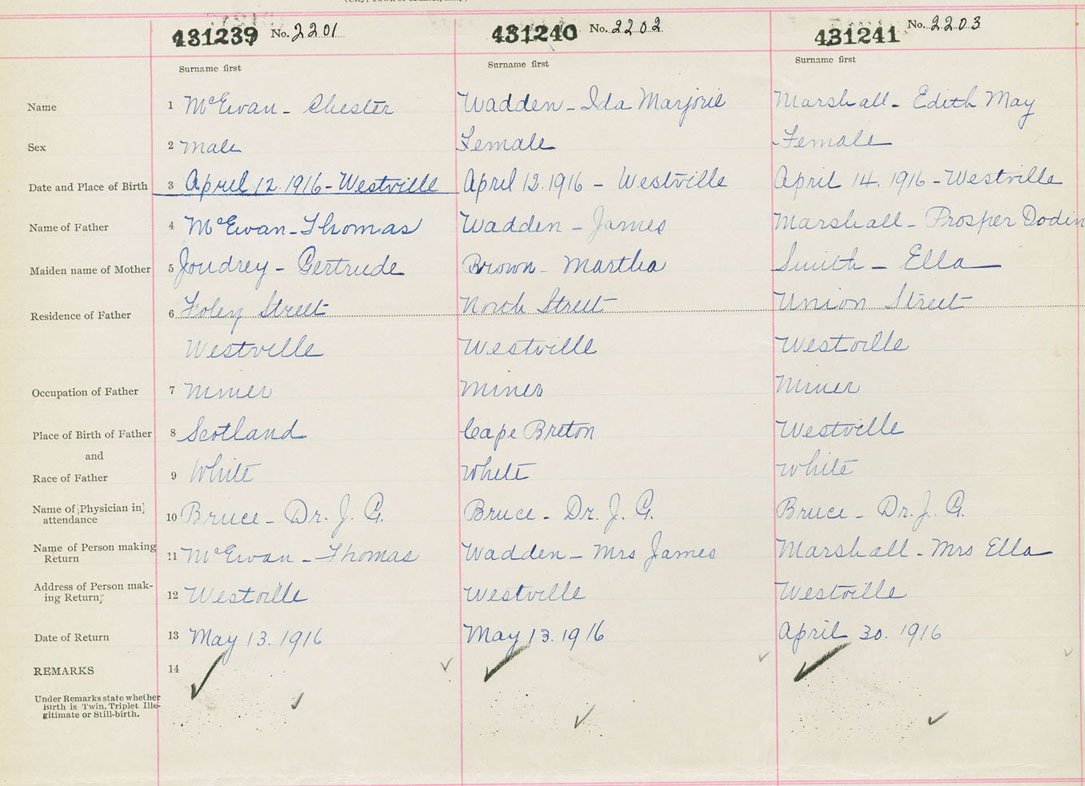 431239 No. 2201 431240 No. 2202 431241 No. 2203
Surname first Surname first Surname first
Name 1 McEwan - Chester Wadden - Ida Marjorie Marshall - Edith May
Sex 2 Male Female Female
Date and Place of Birth 3 April 12. 1916 - Westville April 12. 1916 - Westville April 14. 1916 - Westville
Name of Father 4 McEwan - Thomas Wadden - James Marshall - Prosper Dodin
Maiden name of Mother 5 Joudrey - Gertrude Brown - Martha Smith - Ella
Residence of Father 6 Foley Street North Street Union Street
Westville Westville Westville
Occupation of Father 7 Miner Miner Miner
Place of Birth of Father 8 Scotland Cape Breton Westville
and
Race of Father 9 White White White
Name of Physician in
attendance 10 Bruce - Dr. J. G. Bruce - Dr. J. G. Bruce - Dr. J. G.
Name of Person making
Return 11 McEwan - Thomas Wadden - Mrs James Marshall - Mrs Ella
Address of Person mak-
ing Return 12 Westville Westville Westville
Date of Return 13 May 13. 1916 May 13. 1916 April 30. 1916
REMARKS 14
Under Remarks state whether
Birth is Twin, Triplet Ille-
gitimate or Still-birth.